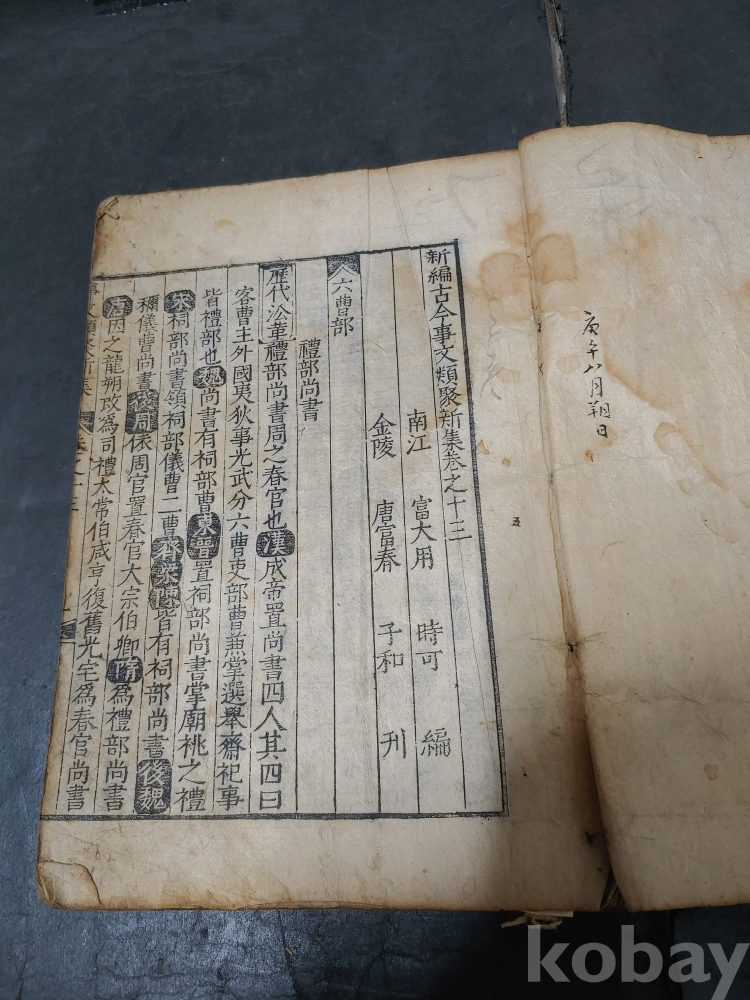 庚午八月朔日
新編古今事文類聚新集卷之十三
南江 富大用 時可 編
金陵 唐富春 子和 刋
六曹部
禮部尚書
歷代沿革 禮部尚書周之春官也漢成帝置尚書四人其四曰
客曹主外國夷狄事光武分六曹吏部曹兼掌選舉齋祀事
皆禮部也魏尚書有祠部曹東晉置祠部尚書掌廟祧之禮
宋祠部尚書領祠部儀曹二曹齊梁陳皆有祠部尚書後魏
稱儀曹尚書後周依周官置春官大宗伯卿隋爲禮部尚書
唐因之龍朔改爲司禮太常伯咸亨復舊光宅爲春官尚書
事文類聚新集 卷之十三
五
kobay